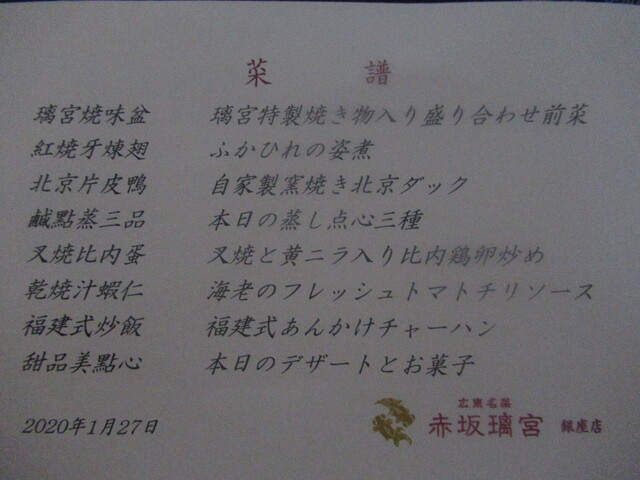 菜 譜
璃宮焼味盆 璃宮特製焼き物入り盛り合わせ前菜
紅焼牙煉翅 ふかひれの姿煮
北京片皮鴨 自家製窯焼き北京ダック
鹹點蒸三品 本日の蒸し点心三種
叉焼比内蛋 叉焼と黄ニラ入り比内鶏卵炒め
乾焼汁蝦仁 海老のフレッシュトマトチリソース
福建式炒飯 福建式あんかけチャーハン
甜品美點心 本日のデザートとお菓子
2020年1月27日
広東名菜
赤坂璃宮 銀座店